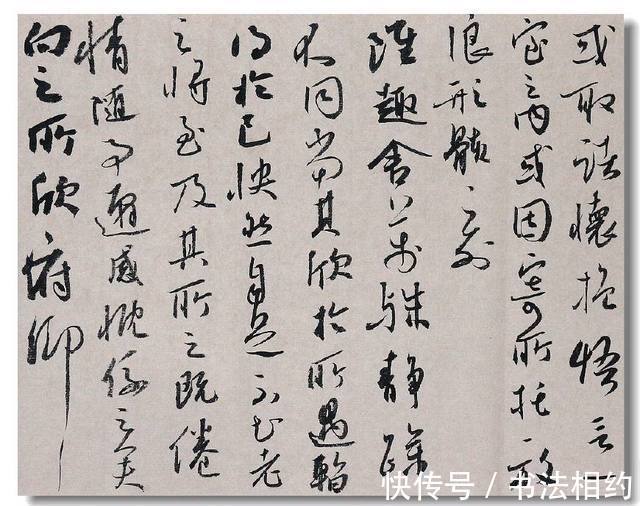 或取諸懷抱悟言一
室之內或因寄所托放
浪形骸之外
雖趣舍萬殊靜躁
不同當其欣於所遇暫
得於己快然自足不知老
之將至及其所之既倦
情隨事遷感慨係之矣
向之所欣俯仰
快传号 / 书法相约